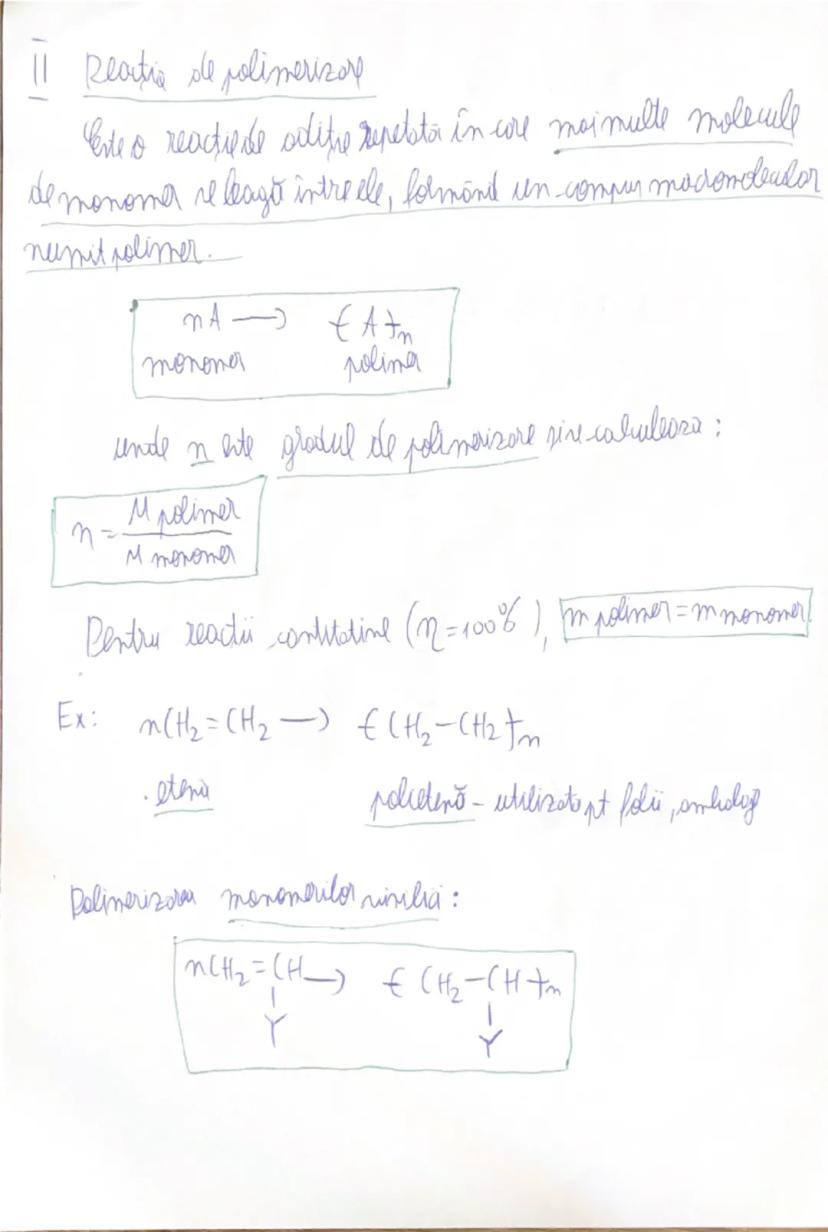 II Reacția de polimerizare
Este o reacție de adiție repetată în care mai multe molecule
de monomer se leagă între ele, formând un compus macromolecular
numit polimer.
nA —> -(A)-n
monomer polimer
unde n este gradul de polimerizare și se calculează:
n = M polimer / M monomer
Pentru reacții cantitative (η=100%), m polimer = m monomer
Ex: nCH2=CH2 —> -(CH2-CH2)-n
etenă polietenă - utilizată pt folii, ambalaj
Polimerizarea monomerilor vinilici:
nCH2=CH —> -(CH2-CH)-n
Y Y